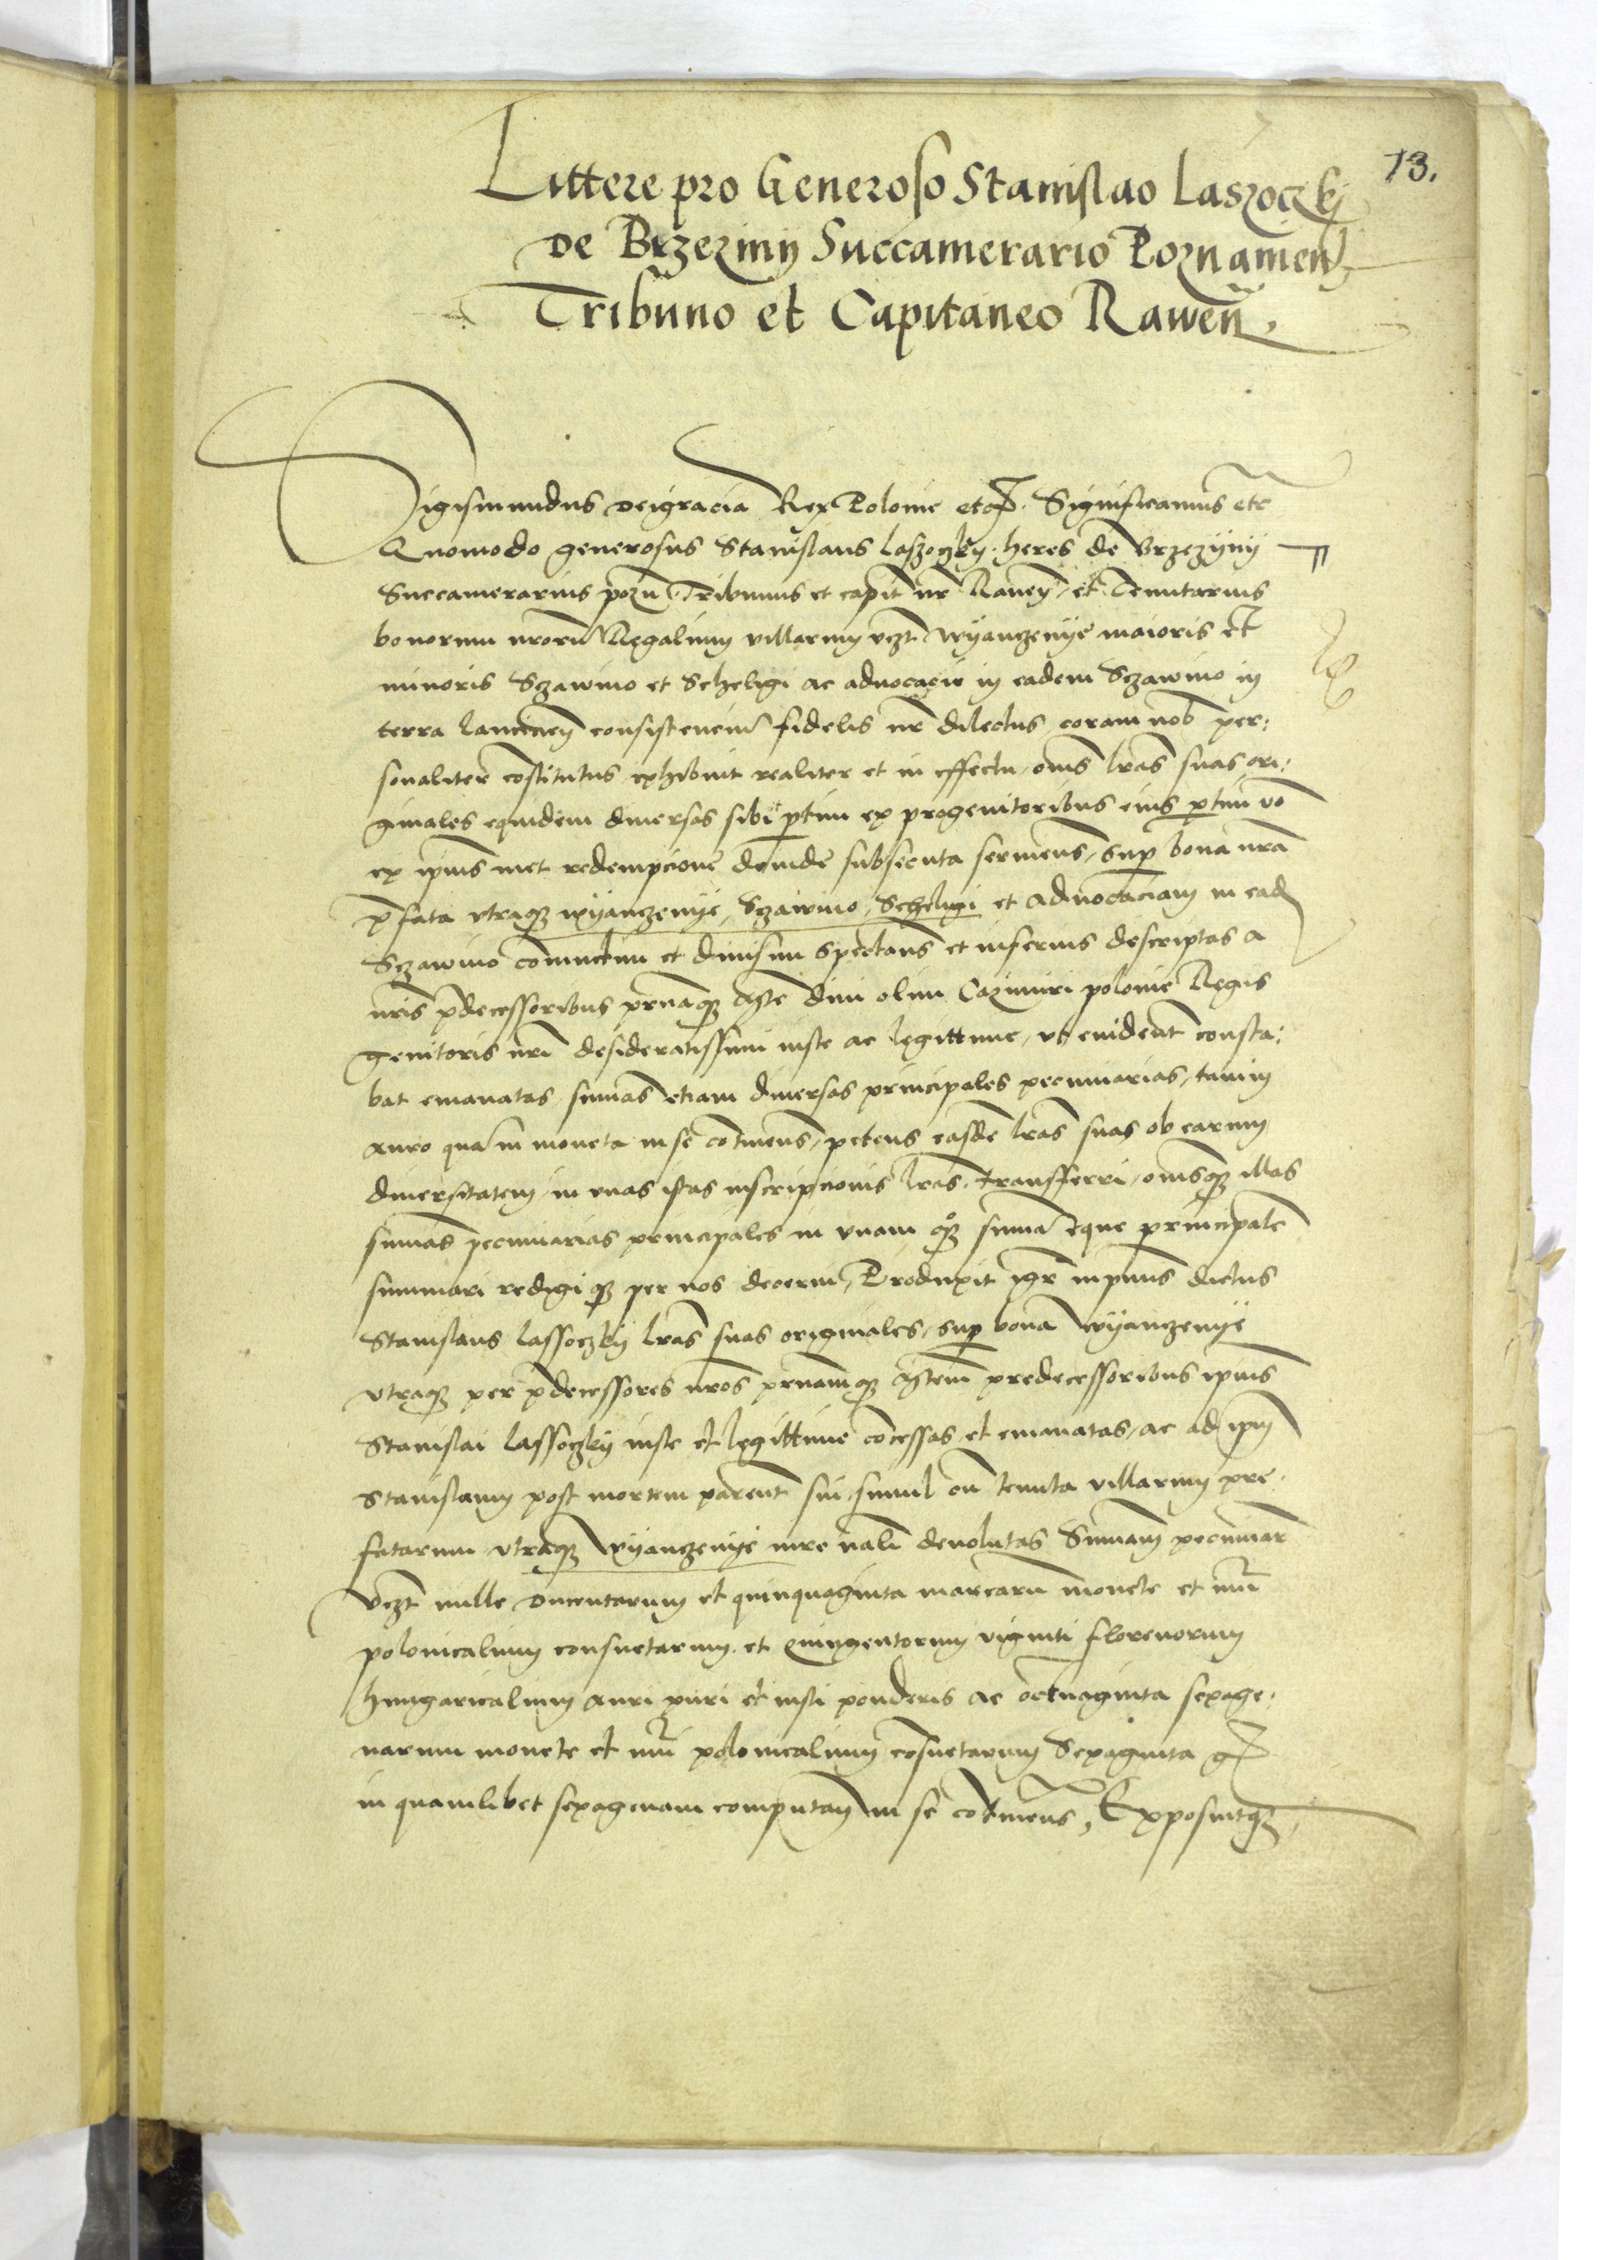 13.
Littere pro Generoso Stanislao Laszoczkÿ
de Brzezinÿ Succamerario Poznanien̄
Tribuno et Capitaneo Rawen̄.
Sigismundus dei gracia Rex Polonie etc. Significamus etc
Quomodo generosus Stanislaus Laszoczkÿ heres de Brzezÿnÿ
Succamerarius pozn̄ Tribunus et capit̄ nr̄ Raven̄ et Tenutarius
bonorum nrorū Regalium villarum vczt wÿanczenÿe maioris et
minoris Sczawino et Scheligi ac advocacie in eadem Sczawino in
terra lancicien̄ consistenciū fidelis nr̄ dilectus coram nob̄ per:
sonaliter cōstitutus exhibuit realiter et in effectu om̄s lr̄as suas ori:
ginales equidem diversas sibi ptim ex progenitoribus eius ptim vō
ex ipius met redempcione deinde subsecuta servien̄s, sup̄ bona nr̄a
p̄fata vtraqȝ wÿanczenÿe, Sczawino, Scheligi et advocaciam in ead̄
Sczawino coniunctim et divisim spectan̄s et inferius descriptas a
nr̄is p̄decessoribus p̄ Regis
genitoris nr̄i desideratissimi iuste ac legittime, vt evident̄ consta:
bat emanatas sum̄as etiam diversas principales pecuniarias, tam in
auro quā in moneta in se cōtinen̄s, petens easdē lr̄as suas ob earum
diversitatem in vnas istas inscripcionis lr̄as transfferri, om̄sqȝ illas
sum̄as pecuniarias principales in vnam qȝ sum̄ā eque principalē
summari redigiqȝ per nos decerni, Produxit igr̄ inprimis dictus
Stanislaus lassoczkÿ lr̄as suas originales, sup̄ bona wÿanczenÿe
vtraqȝ per p̄decessores nr̄os predecessoribus ipius
Stanislai lassoczkÿ iuste et legittime cōcessas et emanatas, ac ad ipm̄
Stanislaum post mortem parent̄ sui, simul cū tenuta villarum pre:
fatarum vtraqȝ wÿanczenÿe iure devolutas Sum̄am pecuniar̄
vczt mille ducentarum et quinquaginta marcarū monete et nūi
polonicalium consuetarum et quingentorum viginti florenorum
hungaricalium auri puri et iusti ponderis ac octuaginta sexage:
narum monete et nūi polonicalium cōsuetarum Sexaginta gȓ
in quamlibet sexagenam computan̄ in se cōtinen̄s, Exposuitqȝ